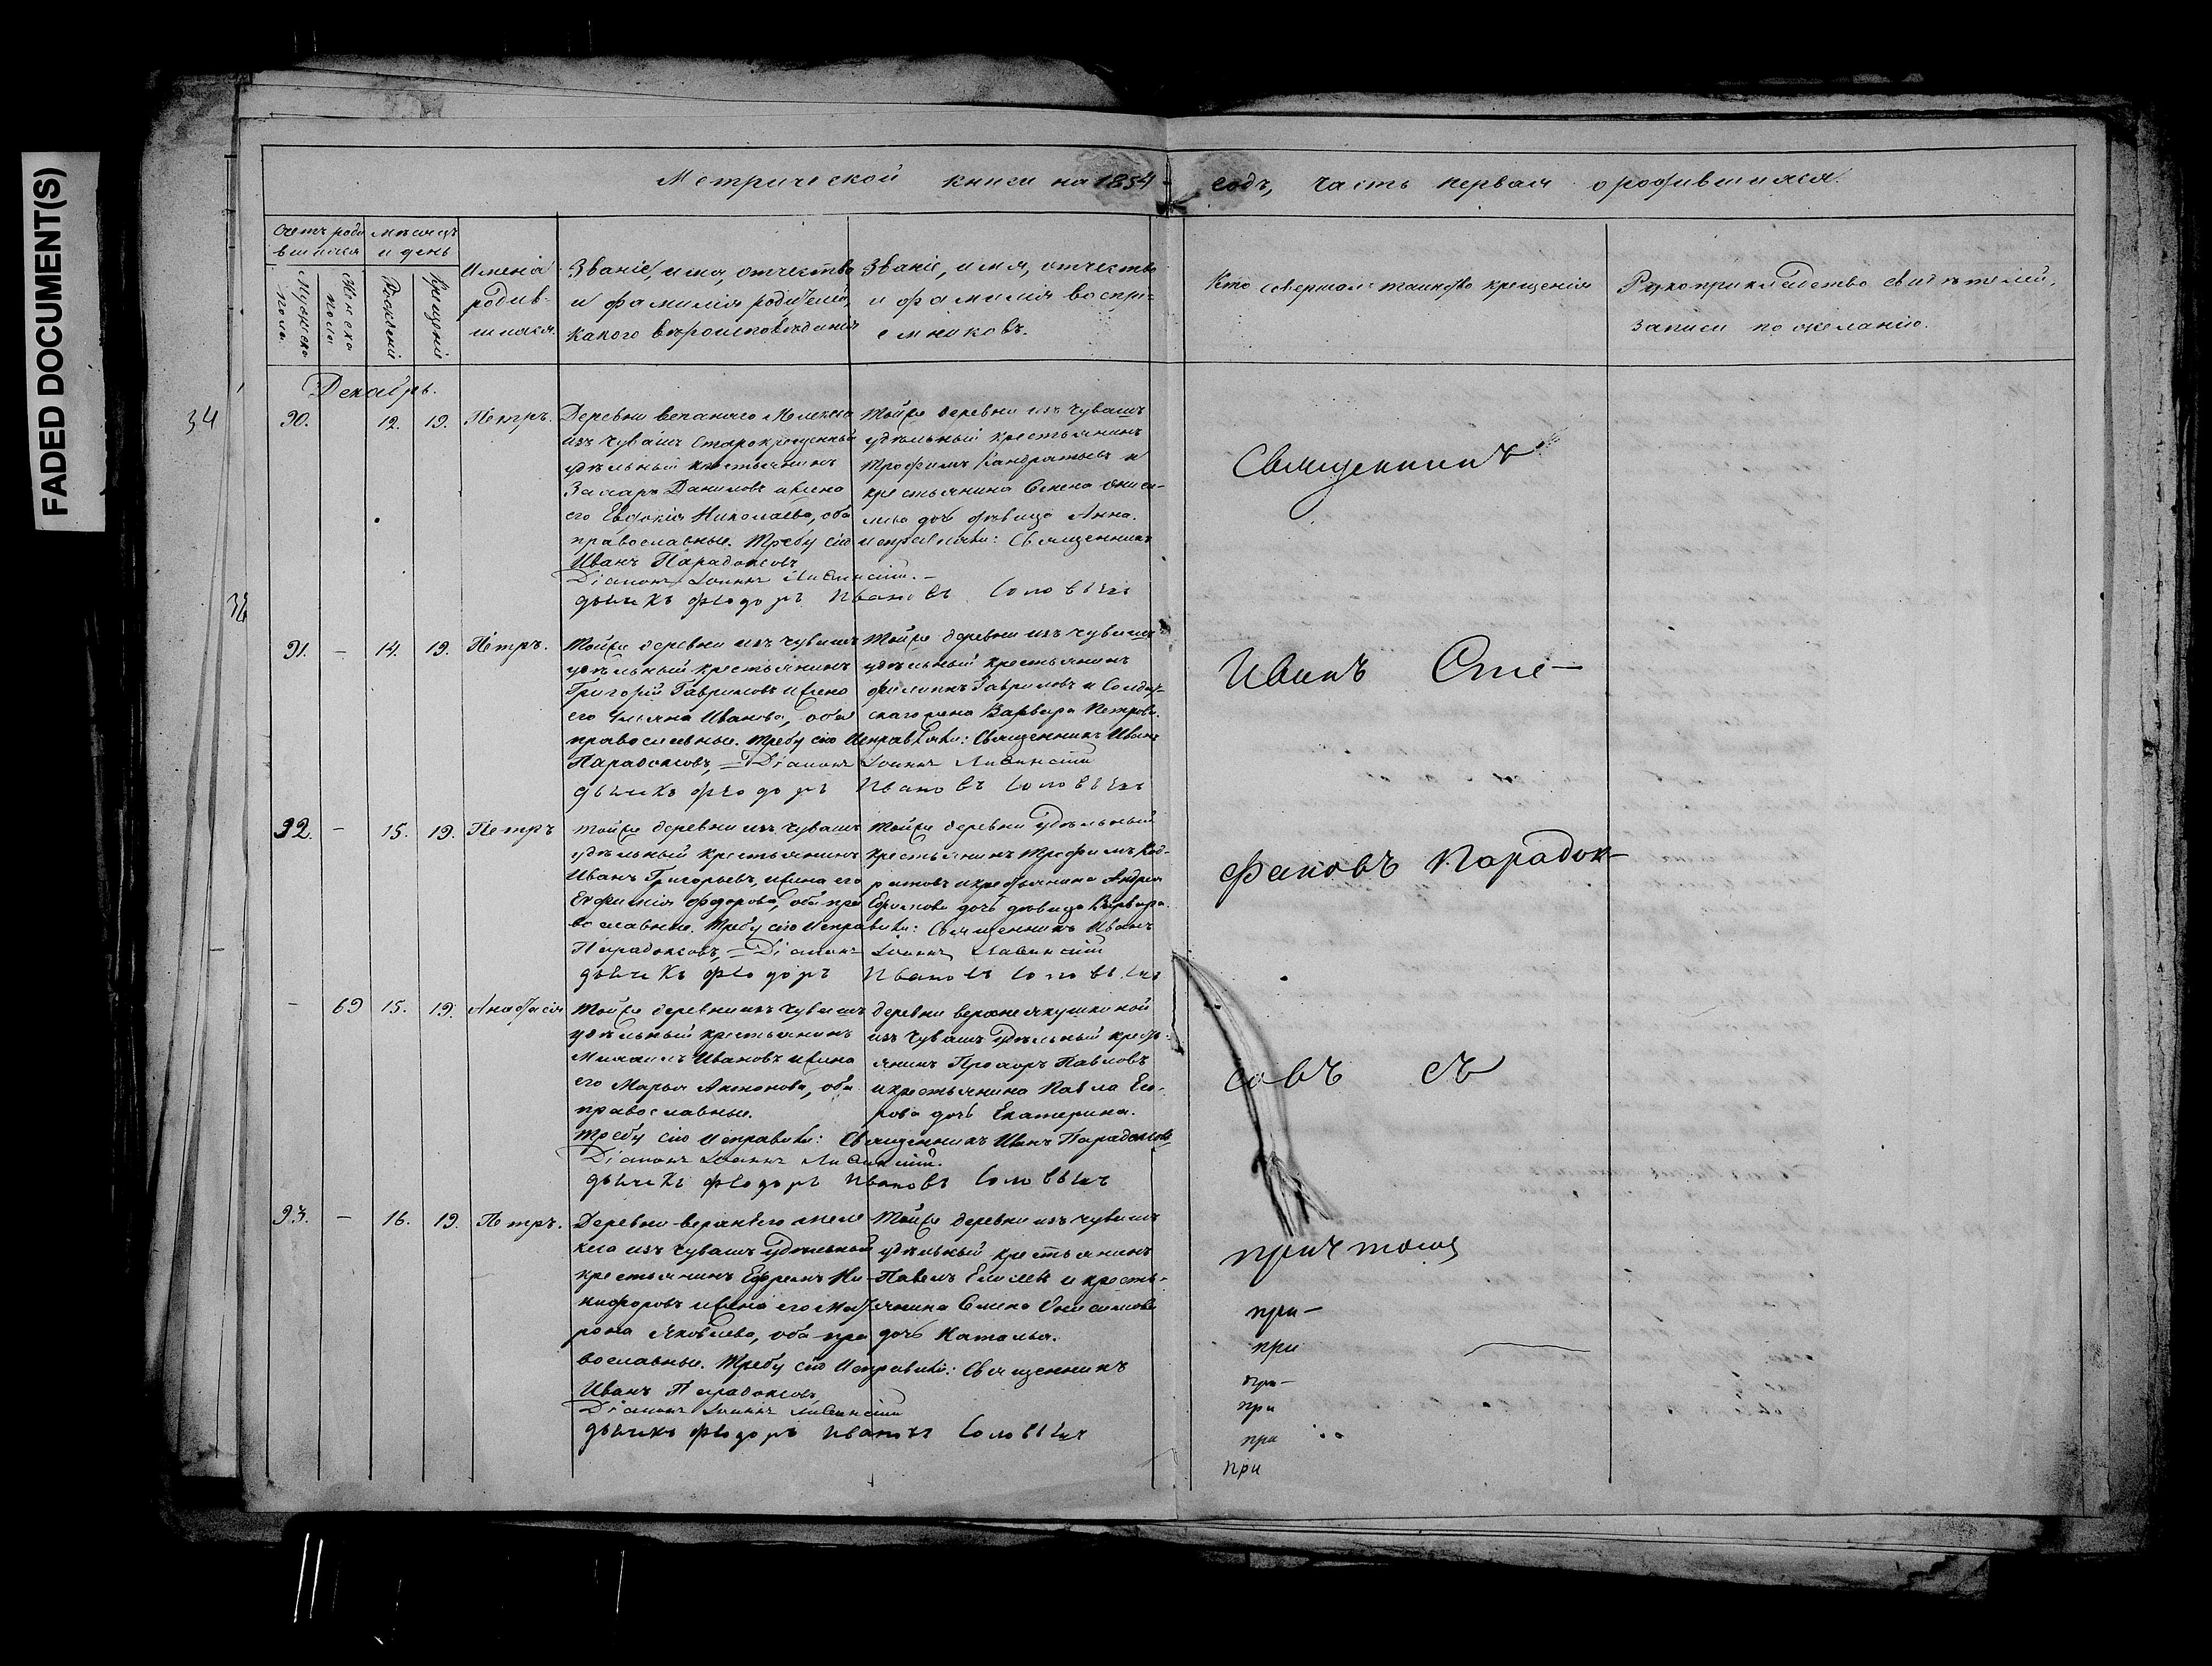 FADED DOCUMENT(S)
Метрической книги на 1854 годъ, часть первая о родившихся.
Счетъ роди- вшихся
Мужеска пола
Женска пола
Мѣсяцъ и день
Рожденія
Крещенія
Имена родив- шихся.
Званіе, имя, отчество
и фамилія родителей,
какого вѣроисповѣданія
Званіе, имя, отчество
и фамилія воспрі-
емниковъ.
Кто совершалъ таинство крещенія
Рукоприкладство свидѣтелей
записи по желанію.
Декабрь.
34
90. 12. 19. Петръ.
Деревни
изъ чувашъ старокрещенный
удѣльный крестьянинъ
Захаръ Даниловъ и жена
его Евдокія Николаева, оба
православные. Требу сію исправляли: Священникъ
Иванъ Парадоксовъ
Діаконъ Іоаннъ
дьячкъ Феодоръ Ивановъ
Тойже деревни изъ чувашъ
удѣльный крестьянинъ
Трофимъ Кандратьевъ и
крестьянина СеменаОниси-
мова дочь дѣвица Анна.
91. – 14. 19. Петръ.
Тойже деревни изъ чувашъ
удѣльный крестьянинъ
Григорій Гавриловъ и жена
его Ульяна Иванова, оба
православные. Требу сію исправляли: Священникъ Иванъ
Парадоксовъ, Діаконъ Іоаннъ
дьячкъ Феодоръ Ивановъ
Тойже деревни изъ чувашъ
удѣльный крестьянинъ
Филиппъ Гавриловъ и Солдат-
ская жена Варвара Петрова.
92. – 15. 19. Петръ
Тойже деревни изъ чувашъ
удѣльный крестьянинъ
Иванъ Григорьевъ, и жена его
Евфимія Федорова, оба пра-
вославные. Требу сію исправляли: Священникъ Иванъ
Парадоксовъ, Діаконъ Іоаннъ
дьячкъ Феодоръ Ивановъ
Тойже деревни удѣльный
крестьянинъ Трофимъ
и крестьянина Андрея
дочь дѣвица Варвара.
– 69 15. 19. Анастасія
Тойже деревни изъ чувашъ
удѣльный крестьянинъ
Михаилъ Ивановъ и жена
его Марья Антонова, оба
православные.
Требу сію исправляли: Священникъ Иванъ Парадоксовъ
Діаконъ Іоаннъ
дьячкъ Феодоръ Ивановъ
деревни верхне якушкиной
изъ чувашъ удѣльный кресть-
янинъ Прохоръ Павловъ
и крестьянина Павла Его-
рова дочь Екатерина.
93. – 16. 19. Петръ.
Деревни верхняго меле-
кеса изъ чувашъ удѣльный
крестьянинъ Ефремъ Ни-
кифоровъ и жена его Мат-
рона Яковлева, оба пра-
вославные. Требу сію исправляли: Священникъ
Иванъ Парадоксовъ
Діаконъ Іоаннъ
дьячкъ Феодоръ Ивановъ
Тойже деревни изъ чувашъ
удѣльный крестьянинъ
Павелъ и кресть-
янина Семена Онисимова
дочь Наталья.
Священникъ
Иванъ Сте-
фановъ Парадок-
совъ съ
причтомъ
при-
при
при-
при
при
при